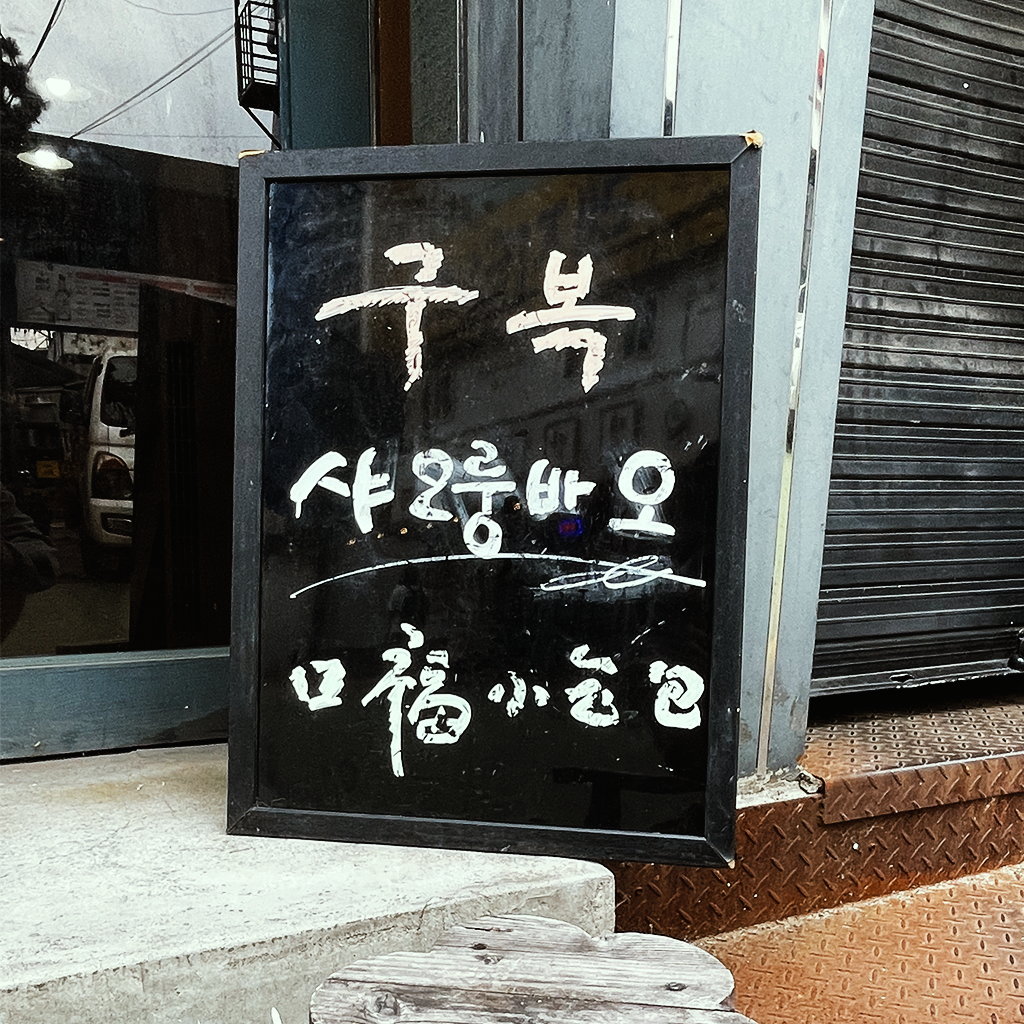 구복
샤오룽바오
口福小仑包